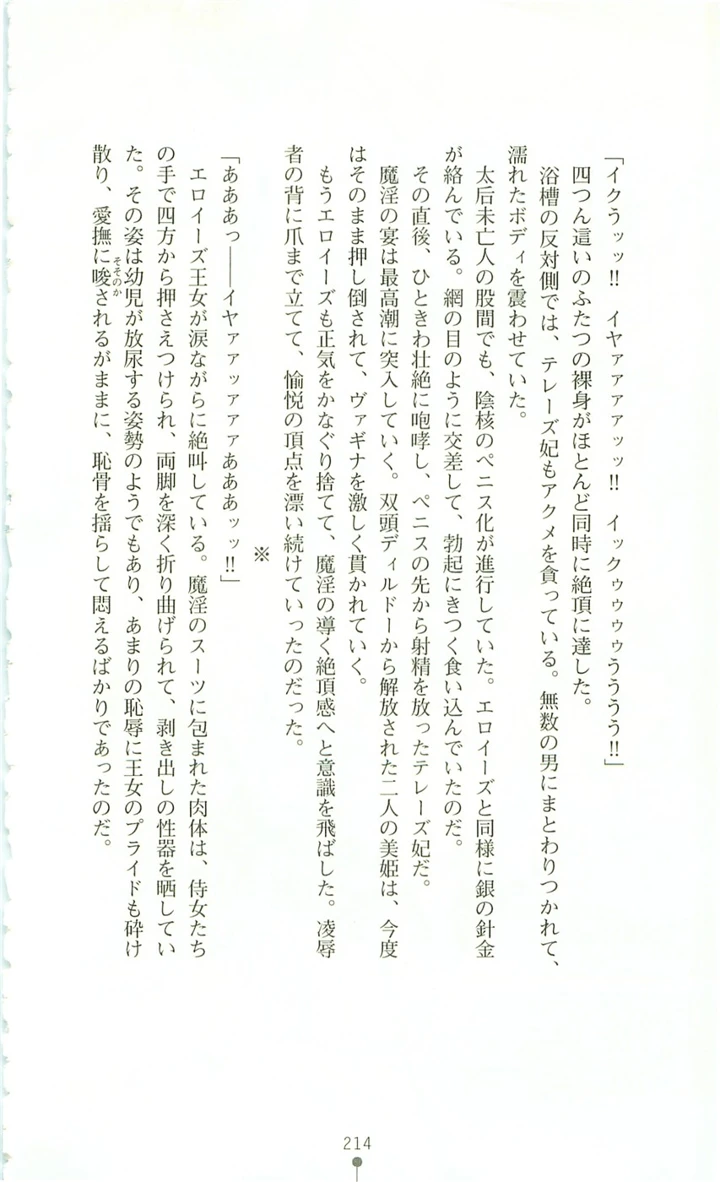 「イクうッッ!! イヤァァァァッッ!! イックゥゥゥゥうううう!!」
四つん這いのふたつの裸身がほとんど同時に絶頂に達した。
浴槽の反対側では、テレーズ妃もアクメを貪っている。無数の男にまとわりつかれて、
濡れたボディを震わせていた。
太后未亡人の股間でも、陰核のペニス化が進行していた。エロイーズと同様に銀の針金
が絡んでいる。網の目のように交差して、勃起にきつく食い込んでいたのだ。
その直後、ひときわ壮絶に咆哮し、ペニスの先から射精を放ったテレーズ妃だ。
魔淫の宴は最高潮に突入していく。双頭ディルドーから解放された二人の美姫は、今度
はそのまま押し倒されて、ヴァギナを激しく貫かれていく。
もうエロイーズも正気をかなぐり捨てて、魔淫の導く絶頂感へと意識を飛ばした。凌辱
者の背に爪まで立てて、愉悦の頂点を漂い続けていったのだった。
※
「あああっ――イヤァァッァァァあああッッ!!」
エロイーズ王女が涙ながらに絶叫している。魔淫のスーツに包まれた肉体は、侍女たち
の手で四方から押さえつけられ、両脚を深く折り曲げられて、剥き出しの性器を晒してい
た。その姿は幼児が放尿する姿勢のようでもあり、あまりの恥辱に王女のプライドも砕け
散り、愛撫に唆そそのかされるがままに、恥骨を揺らして悶えるばかりであったのだ。
214